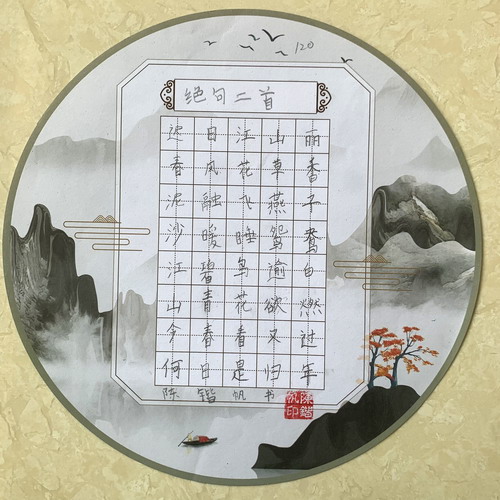 120
绝句二首
迟日江山丽
春风花草香
泥融飞燕子
沙暖睡鸳鸯
江碧鸟逾白
山青花欲燃
今春看又过
何日是归年
陈锴帆书
陈锴帆印